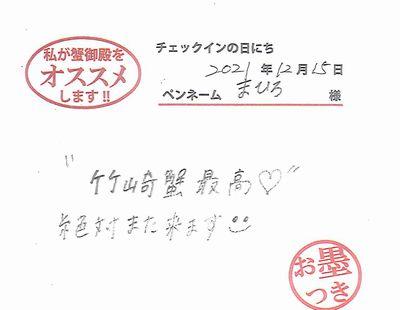 私が蟹御殿を
オススメ
します!!
チェックインの日にち
2021年12月15日
ペンネーム まひろ 様
"竹崎蟹最高♡"
絶対また来ます☺
お墨
つき